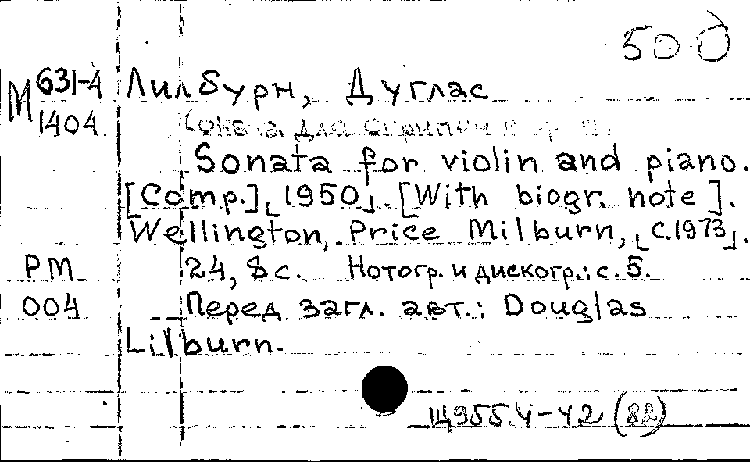 50 д
М 631-4
1404
Лилбурн, Дуглас
Соната для скрипки и ф-п.
Sonata for violin and piano.
[Comp.] [1950]. [With biogr. note].
Wellington, Price Milburn, [c.1973].
РМ
004
24, 8 с. Нотогр. и дискогр.: с. 5.
Перед загл. авт.: Douglas
Lilburn.
Щ955.4-42 (82)